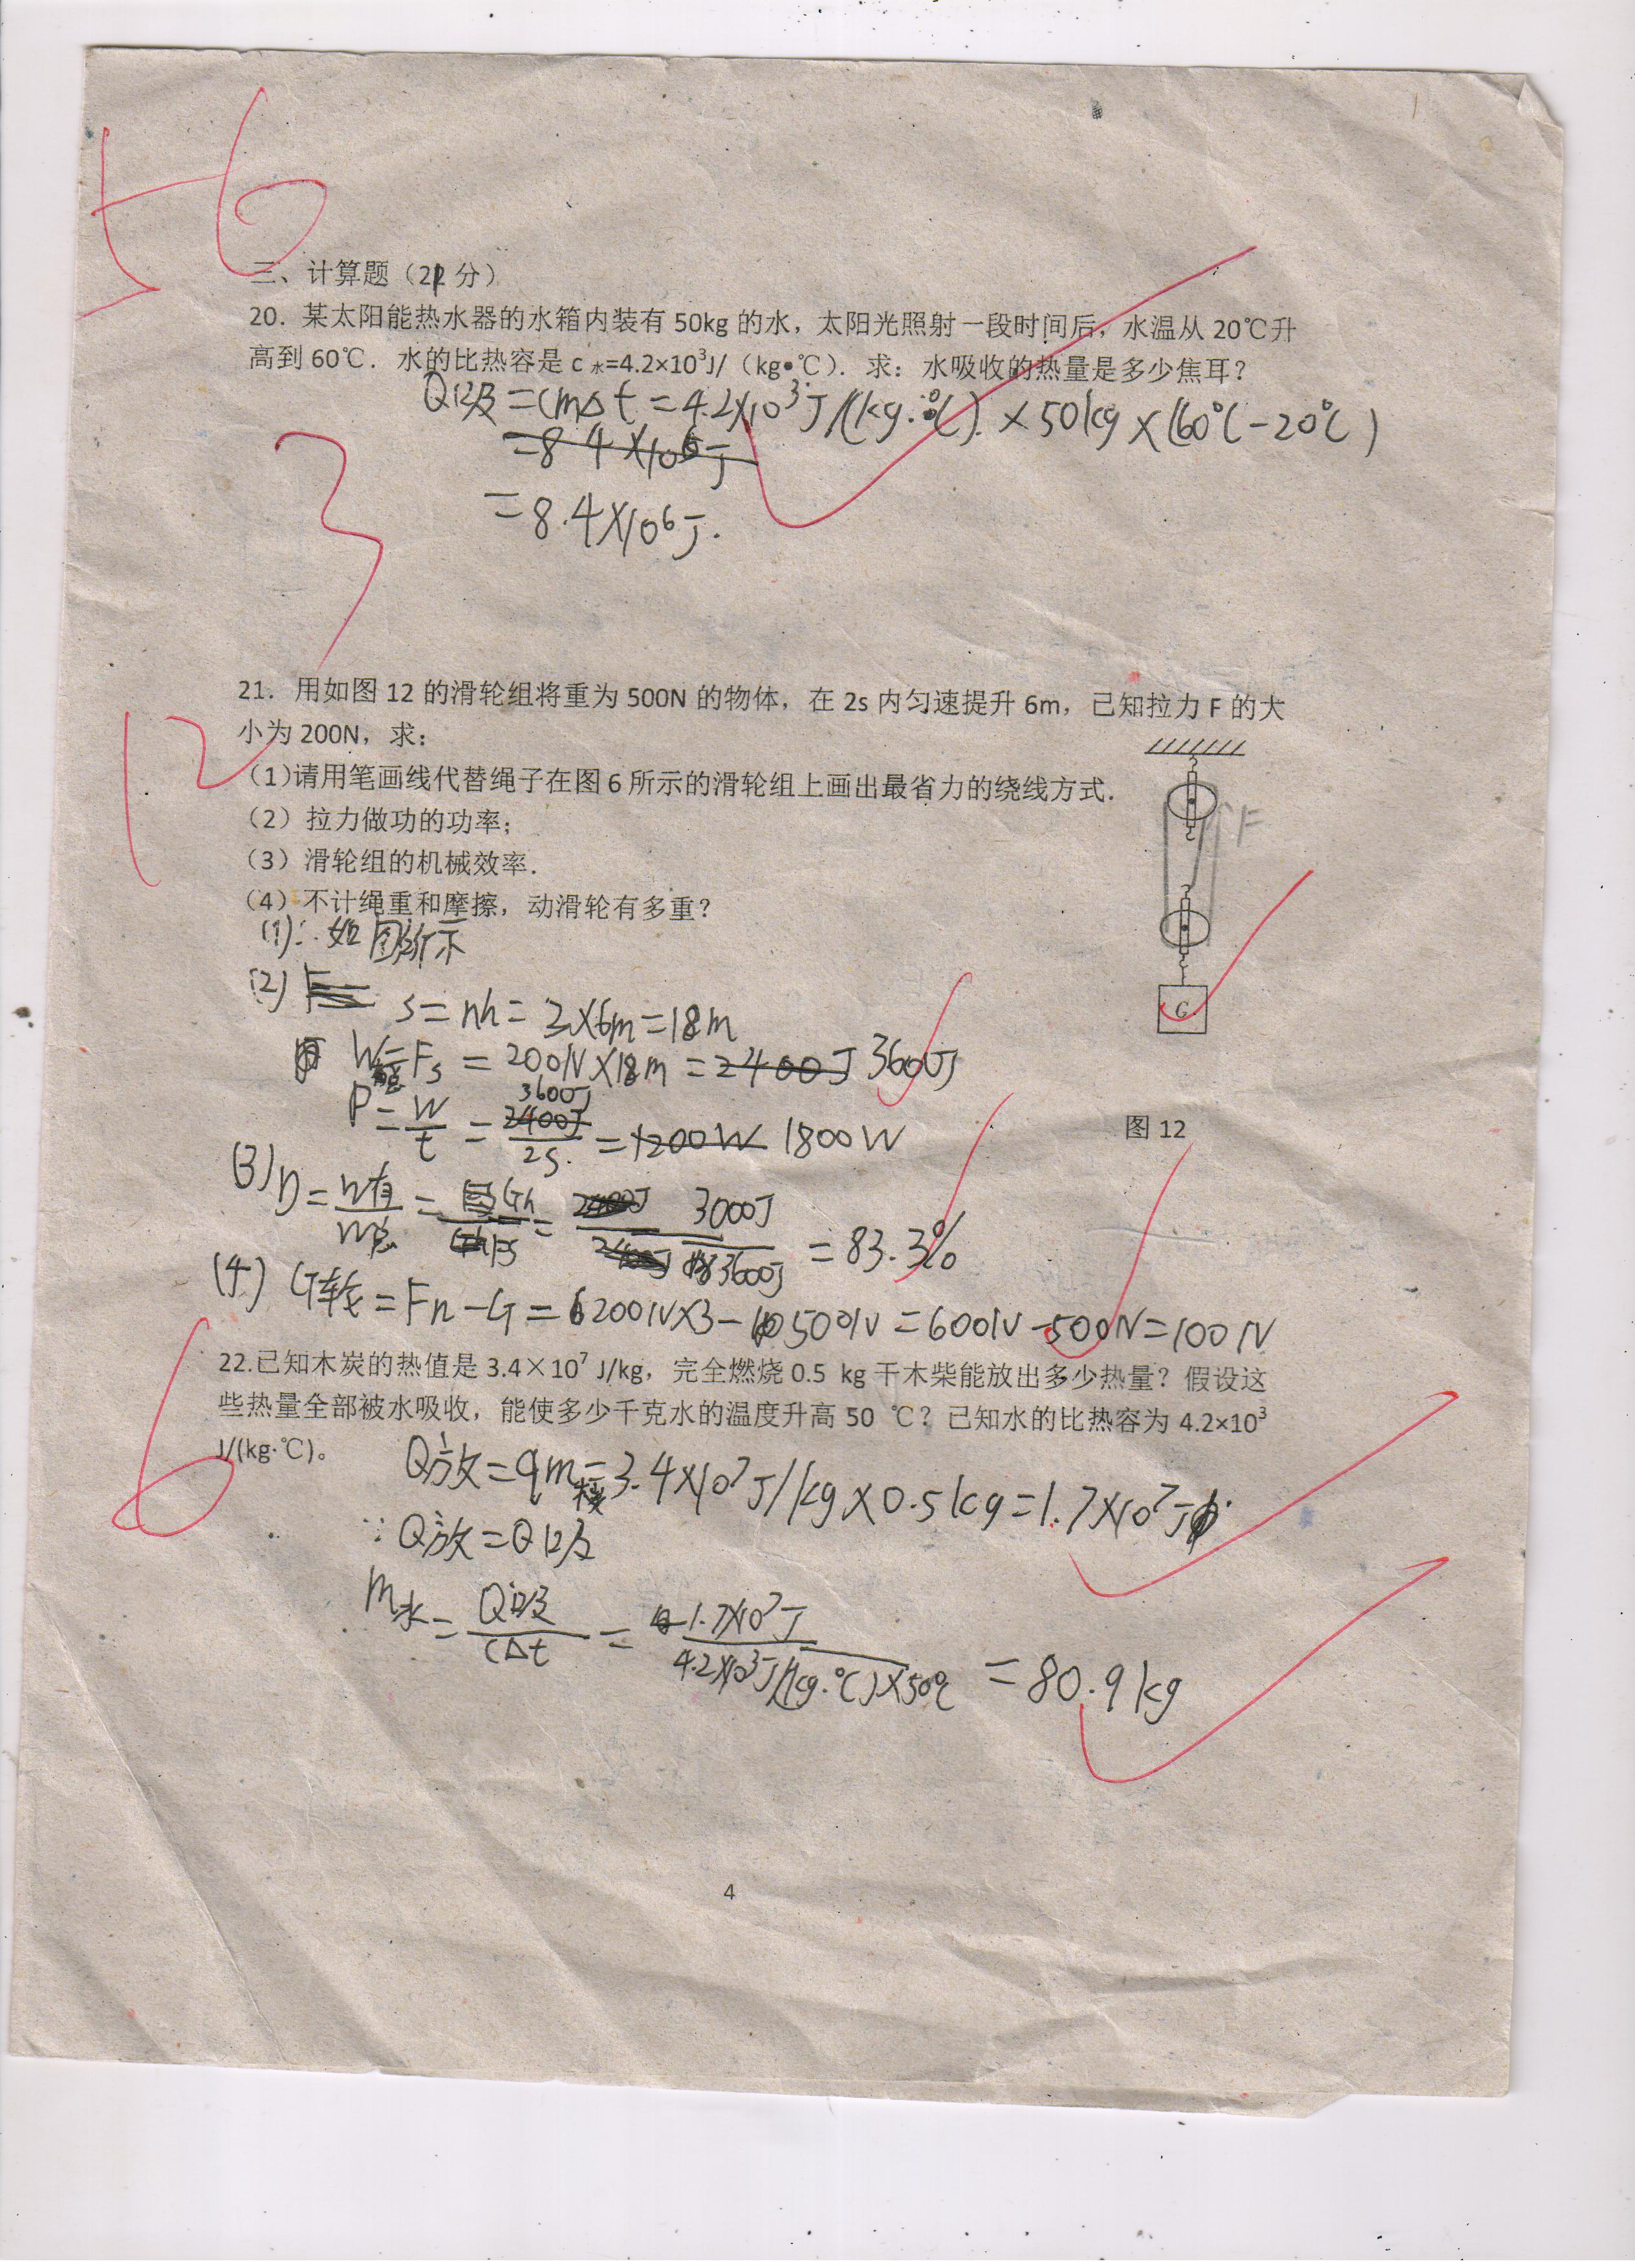 56
三、计算题（21分）
20．某太阳能热水器的水箱内装有50kg的水，太阳光照射一段时间后，水温从20℃升
高到60℃．水的比热容是c水=4.2×10³J/（kg•℃）．求：水吸收的热量是多少焦耳？
Q吸=cmΔt=4.2×10³J/(kg·℃)×50kg×(60℃-20℃)
=8.4×10⁶J
=8.4×10⁶J.
3
21．用如图12的滑轮组将重为500N的物体，在2s内匀速提升6m，已知拉力F的大
小为200N，求：
(1)请用笔画线代替绳子在图6所示的滑轮组上画出最省力的绕线方式．
（2）拉力做功的功率；
（3）滑轮组的机械效率．
（4）不计绳重和摩擦，动滑轮有多重？
12
F
G
图12
(1)：如图所示
(2) s=nh=3×6m=18m
W总=Fs=200N×18m=2400J 3600J
P=W/t=3600J/2s=1200W 1800W
(3) η=W有/W总=Gh/Fs=3000J/3600J=83.3%
(4) G轮=Fn-G=200N×3-500N=600N-500N=100N
22.已知木炭的热值是3.4×10⁷ J/kg，完全燃烧0.5 kg干木柴能放出多少热量？假设这
些热量全部被水吸收，能使多少千克水的温度升高50 ℃？已知水的比热容为4.2×10³
J/(kg·℃)。
6
Q放=qm=3.4×10⁷J/kg×0.5kg=1.7×10⁷J
∵Q放=Q吸
m水=Q吸/cΔt=1.7×10⁷J/4.2×10³J/(kg·℃)×50℃=80.9kg
4